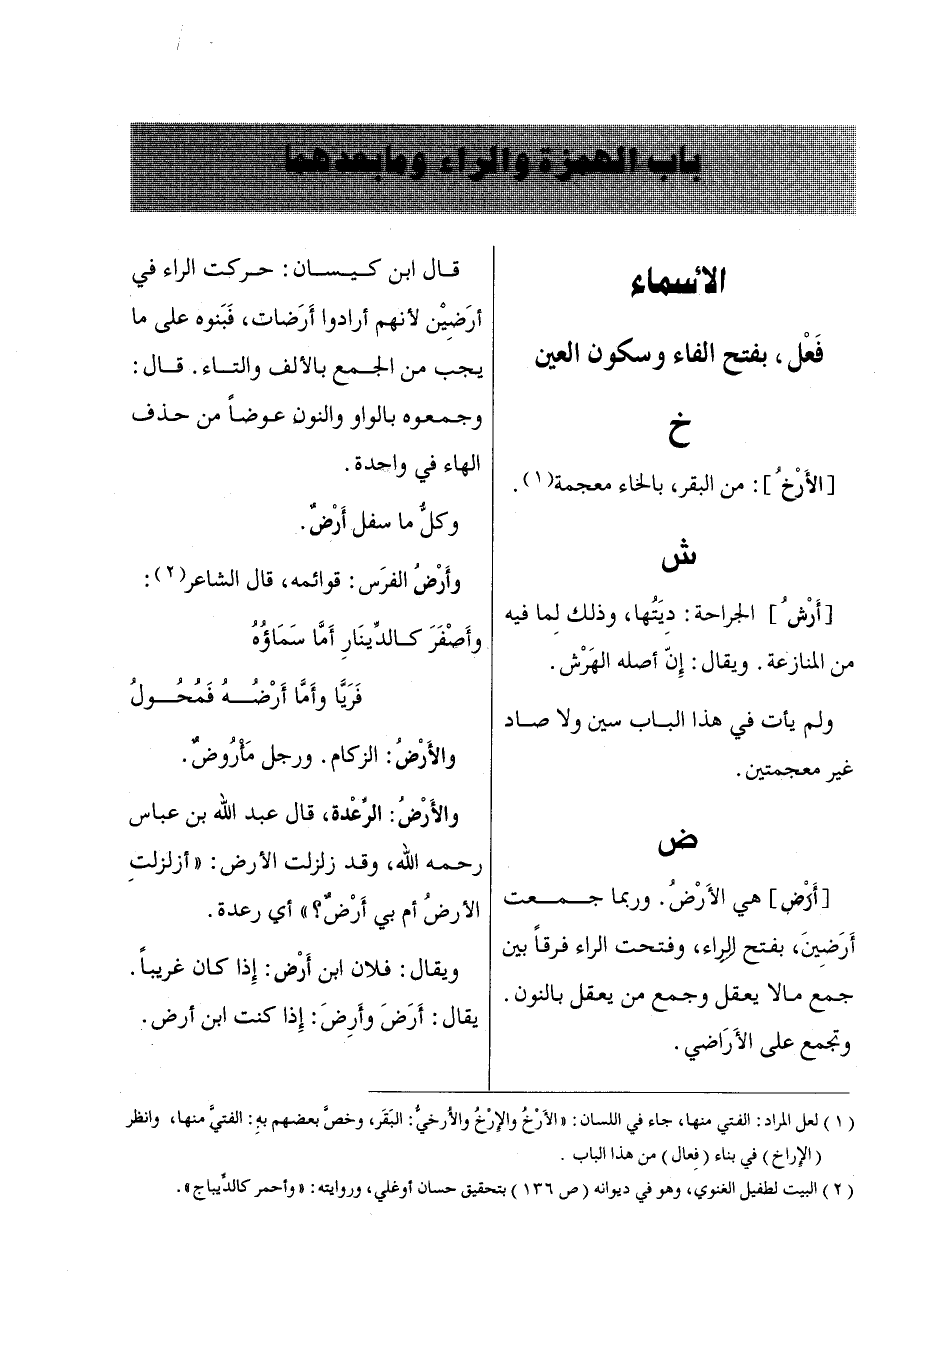 باب الهمزة والراء ومابعدهما
الأسماء
فَعْل، بفتح الفاء وسكون العين
خ
[الأَرْخُ]: من البقر، بالخاء معجمة(١).
ش
[أَرْشُ] الجراحة: دِيَتُها، وذلك لِما فيه
من المنازعة. ويقال: إنّ أصله الهَرْش.
ولم يأت في هذا الباب سين ولا صاد
غير معجمتين.
ض
[أَرْض] هي الأَرْضُ. وربما جمعت
أَرَضِينَ، بفتح الراء، وفتحت الراء فرقاً بين
جمع مالا يعقل وجمع من يعقل بالنون.
وتجمع على الأَرَاضي.
قال ابن كيسان: حركت الراء في
أرَضِيْن لأنهم أرادوا أَرَضات، فَبَنوه على ما
يجب من الجمع بالألف والتاء. قال:
وجمعوه بالواو والنون عوضاً من حذف
الهاء في واحدة.
وكلُّ ما سفل أَرْضٌ.
وأَرْضُ الفرَس: قوائمه، قال الشاعر(٢):
وأَصْفَرَ كالدِّينَارِ أمَّا سَمَاؤُهُ
فَرَيَّا وأَمَّا أَرْضُهُ فَمُحُولُ
والأَرْضُ: الزكام. ورجل مَأْرُوضٌ.
والأَرْضُ: الرِّعْدة، قال عبد الله بن عباس
رحمه الله، وقد زلزلت الأرض: «أزلزلتِ
الأرضُ أم بي أَرْضٌ؟» أي رعدة.
ويقال: فلان ابن أَرْض: إذا كان غريباً.
يقال: أَرَضَ وأَرِضَ: إذا كنت ابن أرض.
(١) لعل المراد: الفتي منها، جاء في اللسان: «الأَرْخُ والإرْخُ والأُرخيُّ: البَقَر، وخصَّ بعضهم بهِ: الفتيَّ منها، وانظر
(الإراخ) في بناء (فِعال) من هذا الباب.
(٢) البيت لطفيل الغنوي، وهو في ديوانه (ص ١٣٦) بتحقيق حسان أوغلي، وروايته: «وأحمر كالدِّيباج».